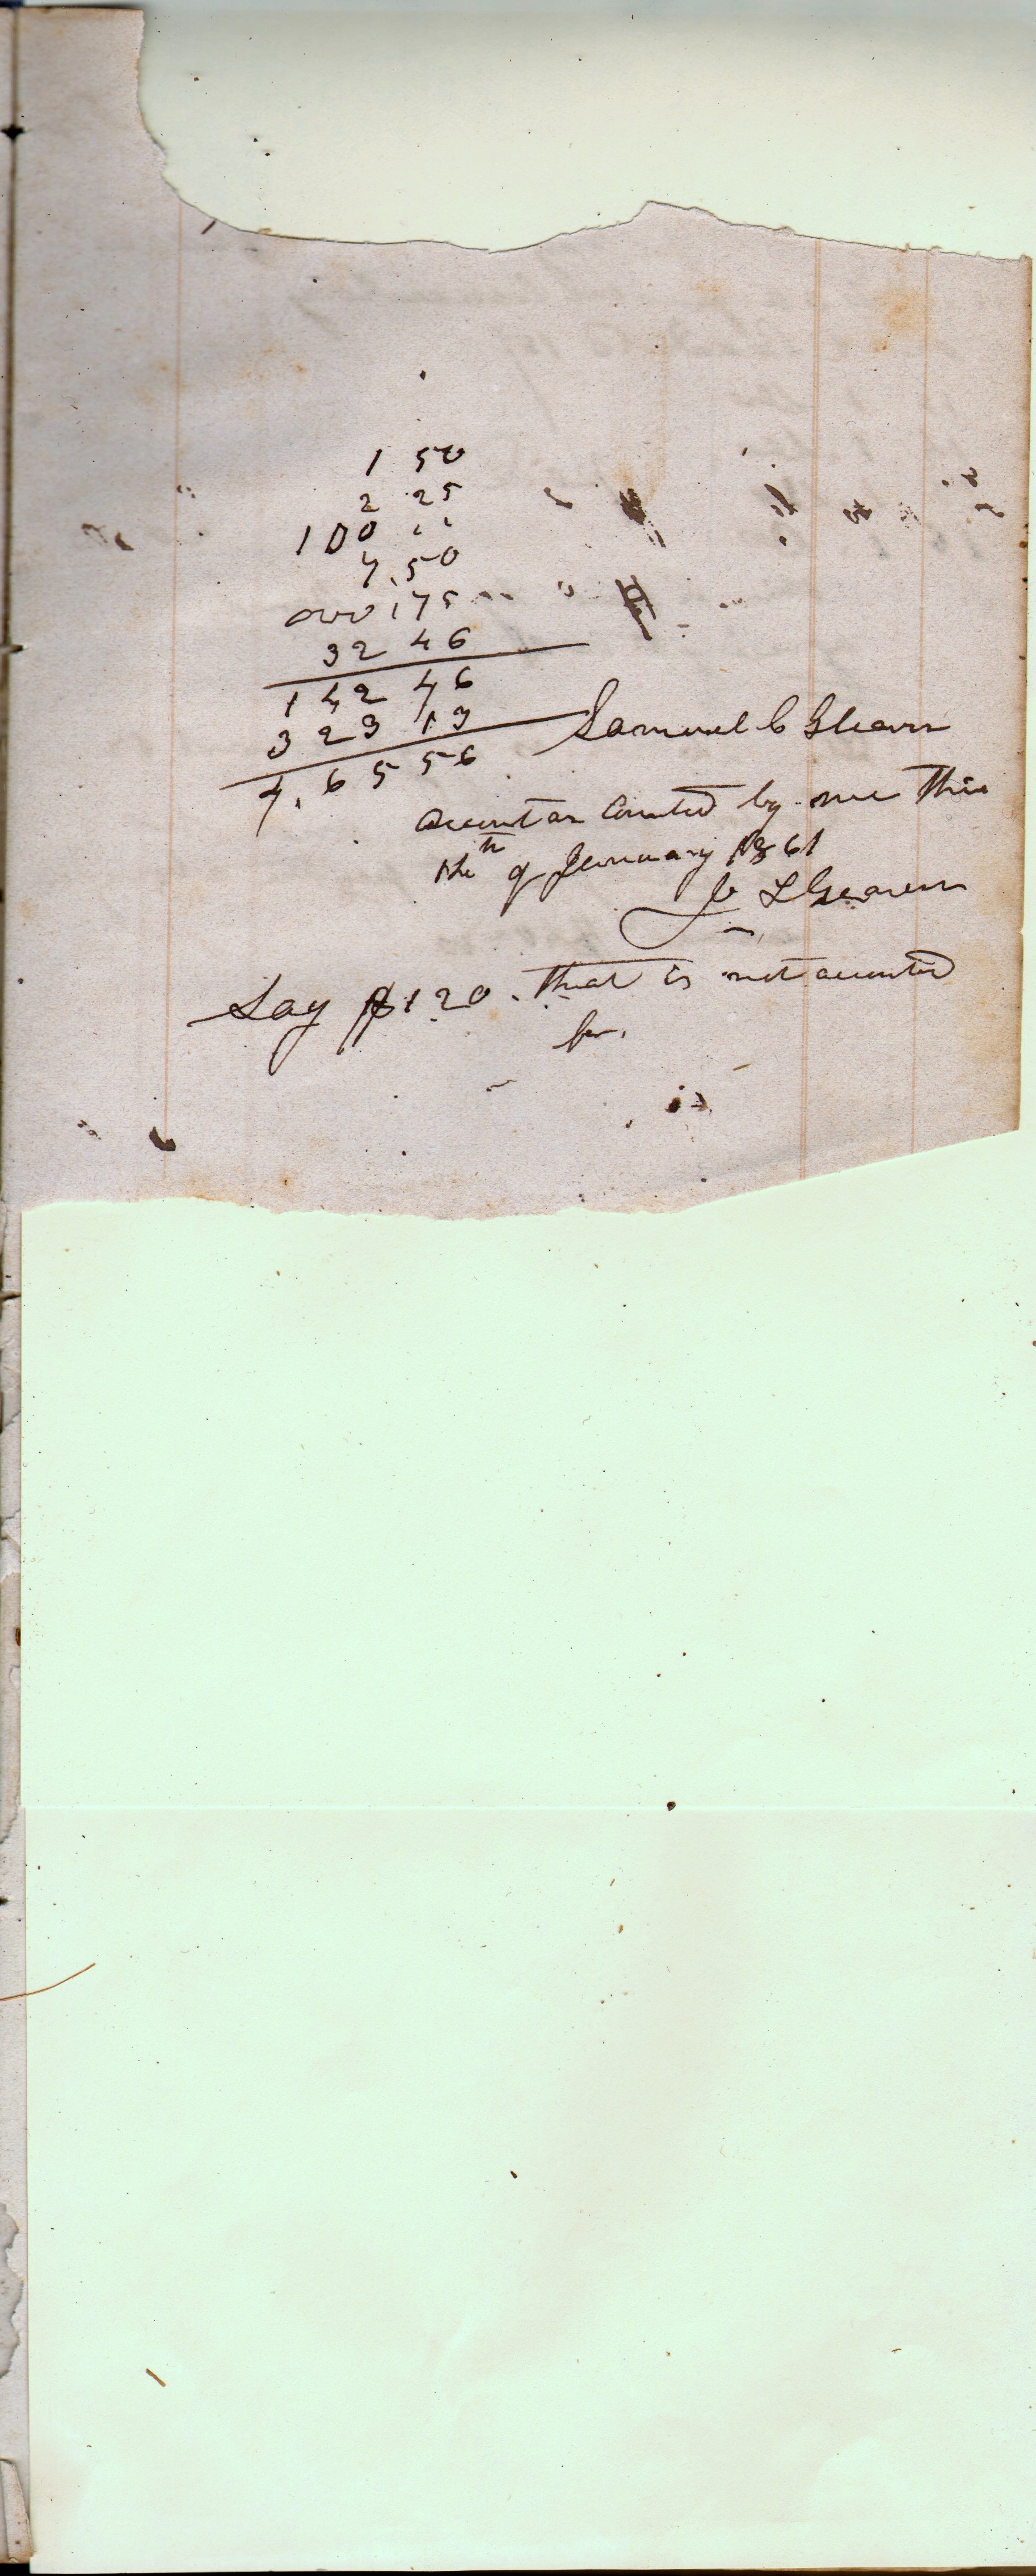 1 50
2 25
100 "
4.50
175
32 46
142 46
323 13
4.6556
Samuel C
account as Counted by me This
the of January 1861
J
Say $120. That is not accounted
for.